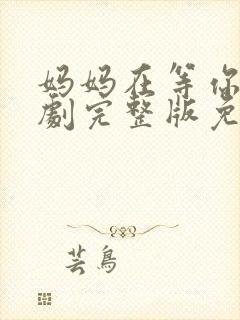 妈妈在等你
劇完整版免
芸鳥